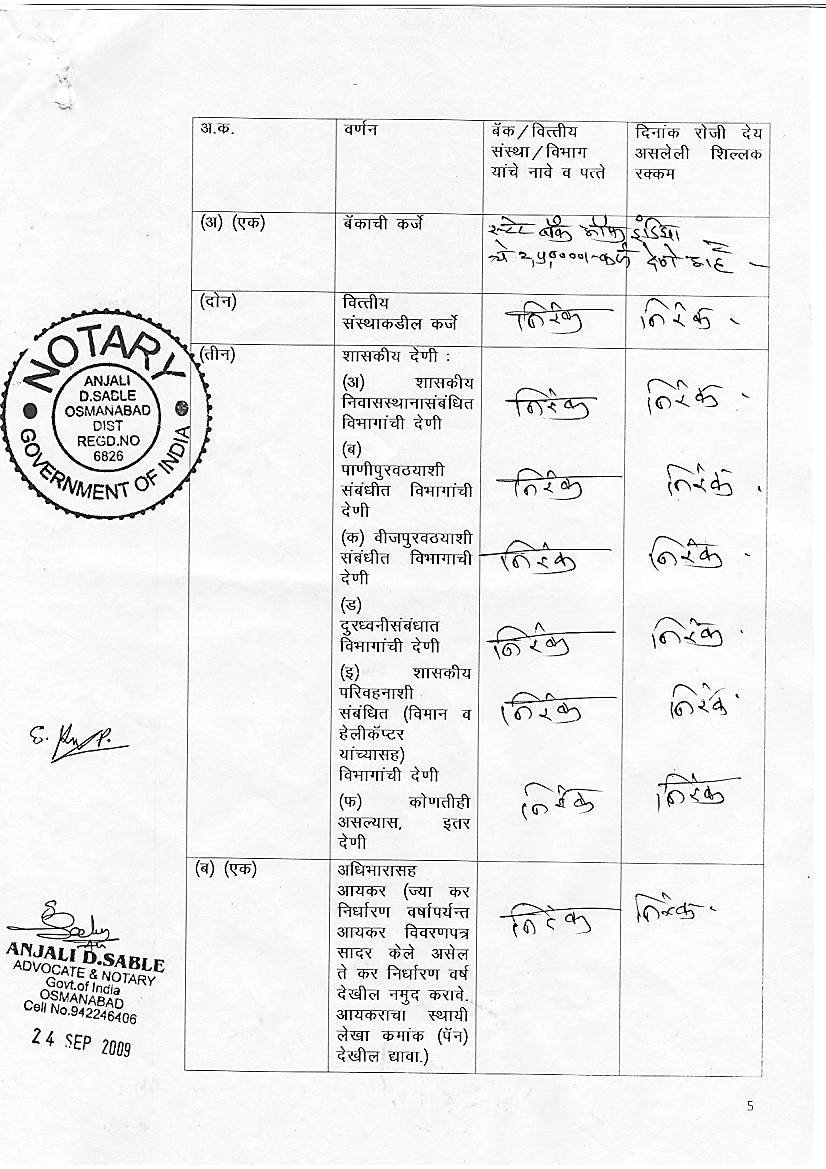 अ.क.
वर्णन
बॅक/वित्तीय
संस्था/विभाग
यांचे नावे व पत्ते
दिनांक रोजी देय
असलेली शिल्लक
रक्कम
(अ) (एक)
बॅकाची कर्जे
स्टेट बँक ऑफ इंडिया
चे २,५००००/- कर्ज देणे आहे
(दोन)
वित्तीय
संस्थाकडील कर्जे
निरंक
निरंक
(तीन)
शासकीय देणी :
(अ) शासकीय
निवासस्थानासंबंधित
विभागांची देणी
निरंक
निरंक
(ब)
पाणीपुरवठयाशी
संबंधीत विभागांची
देणी
निरंक
निरंक
(क) वीजपुरवठयाशी
संबंधीत विभागाची
देणी
निरंक
निरंक
(ड)
दुरध्वनीसंबंधात
विभागांची देणी
निरंक
निरंक
(इ) शासकीय
परिवहनाशी
संबंधित (विमान व
हेलीकॅप्टर
यांच्यासह)
विभागांची देणी
निरंक
निरंक
(फ) कोणतीही
असल्यास, इतर
देणी
निरंक
निरंक
(ब) (एक)
अधिभारासह
आयकर (ज्या कर
निर्धारण वर्षापर्यन्त
आयकर विवरणपत्र
सादर केले असेल
ते कर निर्धारण वर्ष
देखील नमुद करावे.
आयकराचा स्थायी
लेखा कमांक (पॅन)
देखील द्यावा.)
निरंक
निरंक
NOTARY
ANJALI
D.SABLE
OSMANABAD
DIST
REGD.NO
6826
GOVERNMENT OF INDIA
ANJALI D.SABLE
ADVOCATE & NOTARY
Govt.of India
OSMANABAD
Cell No.942246406
24 SEP 2009
5